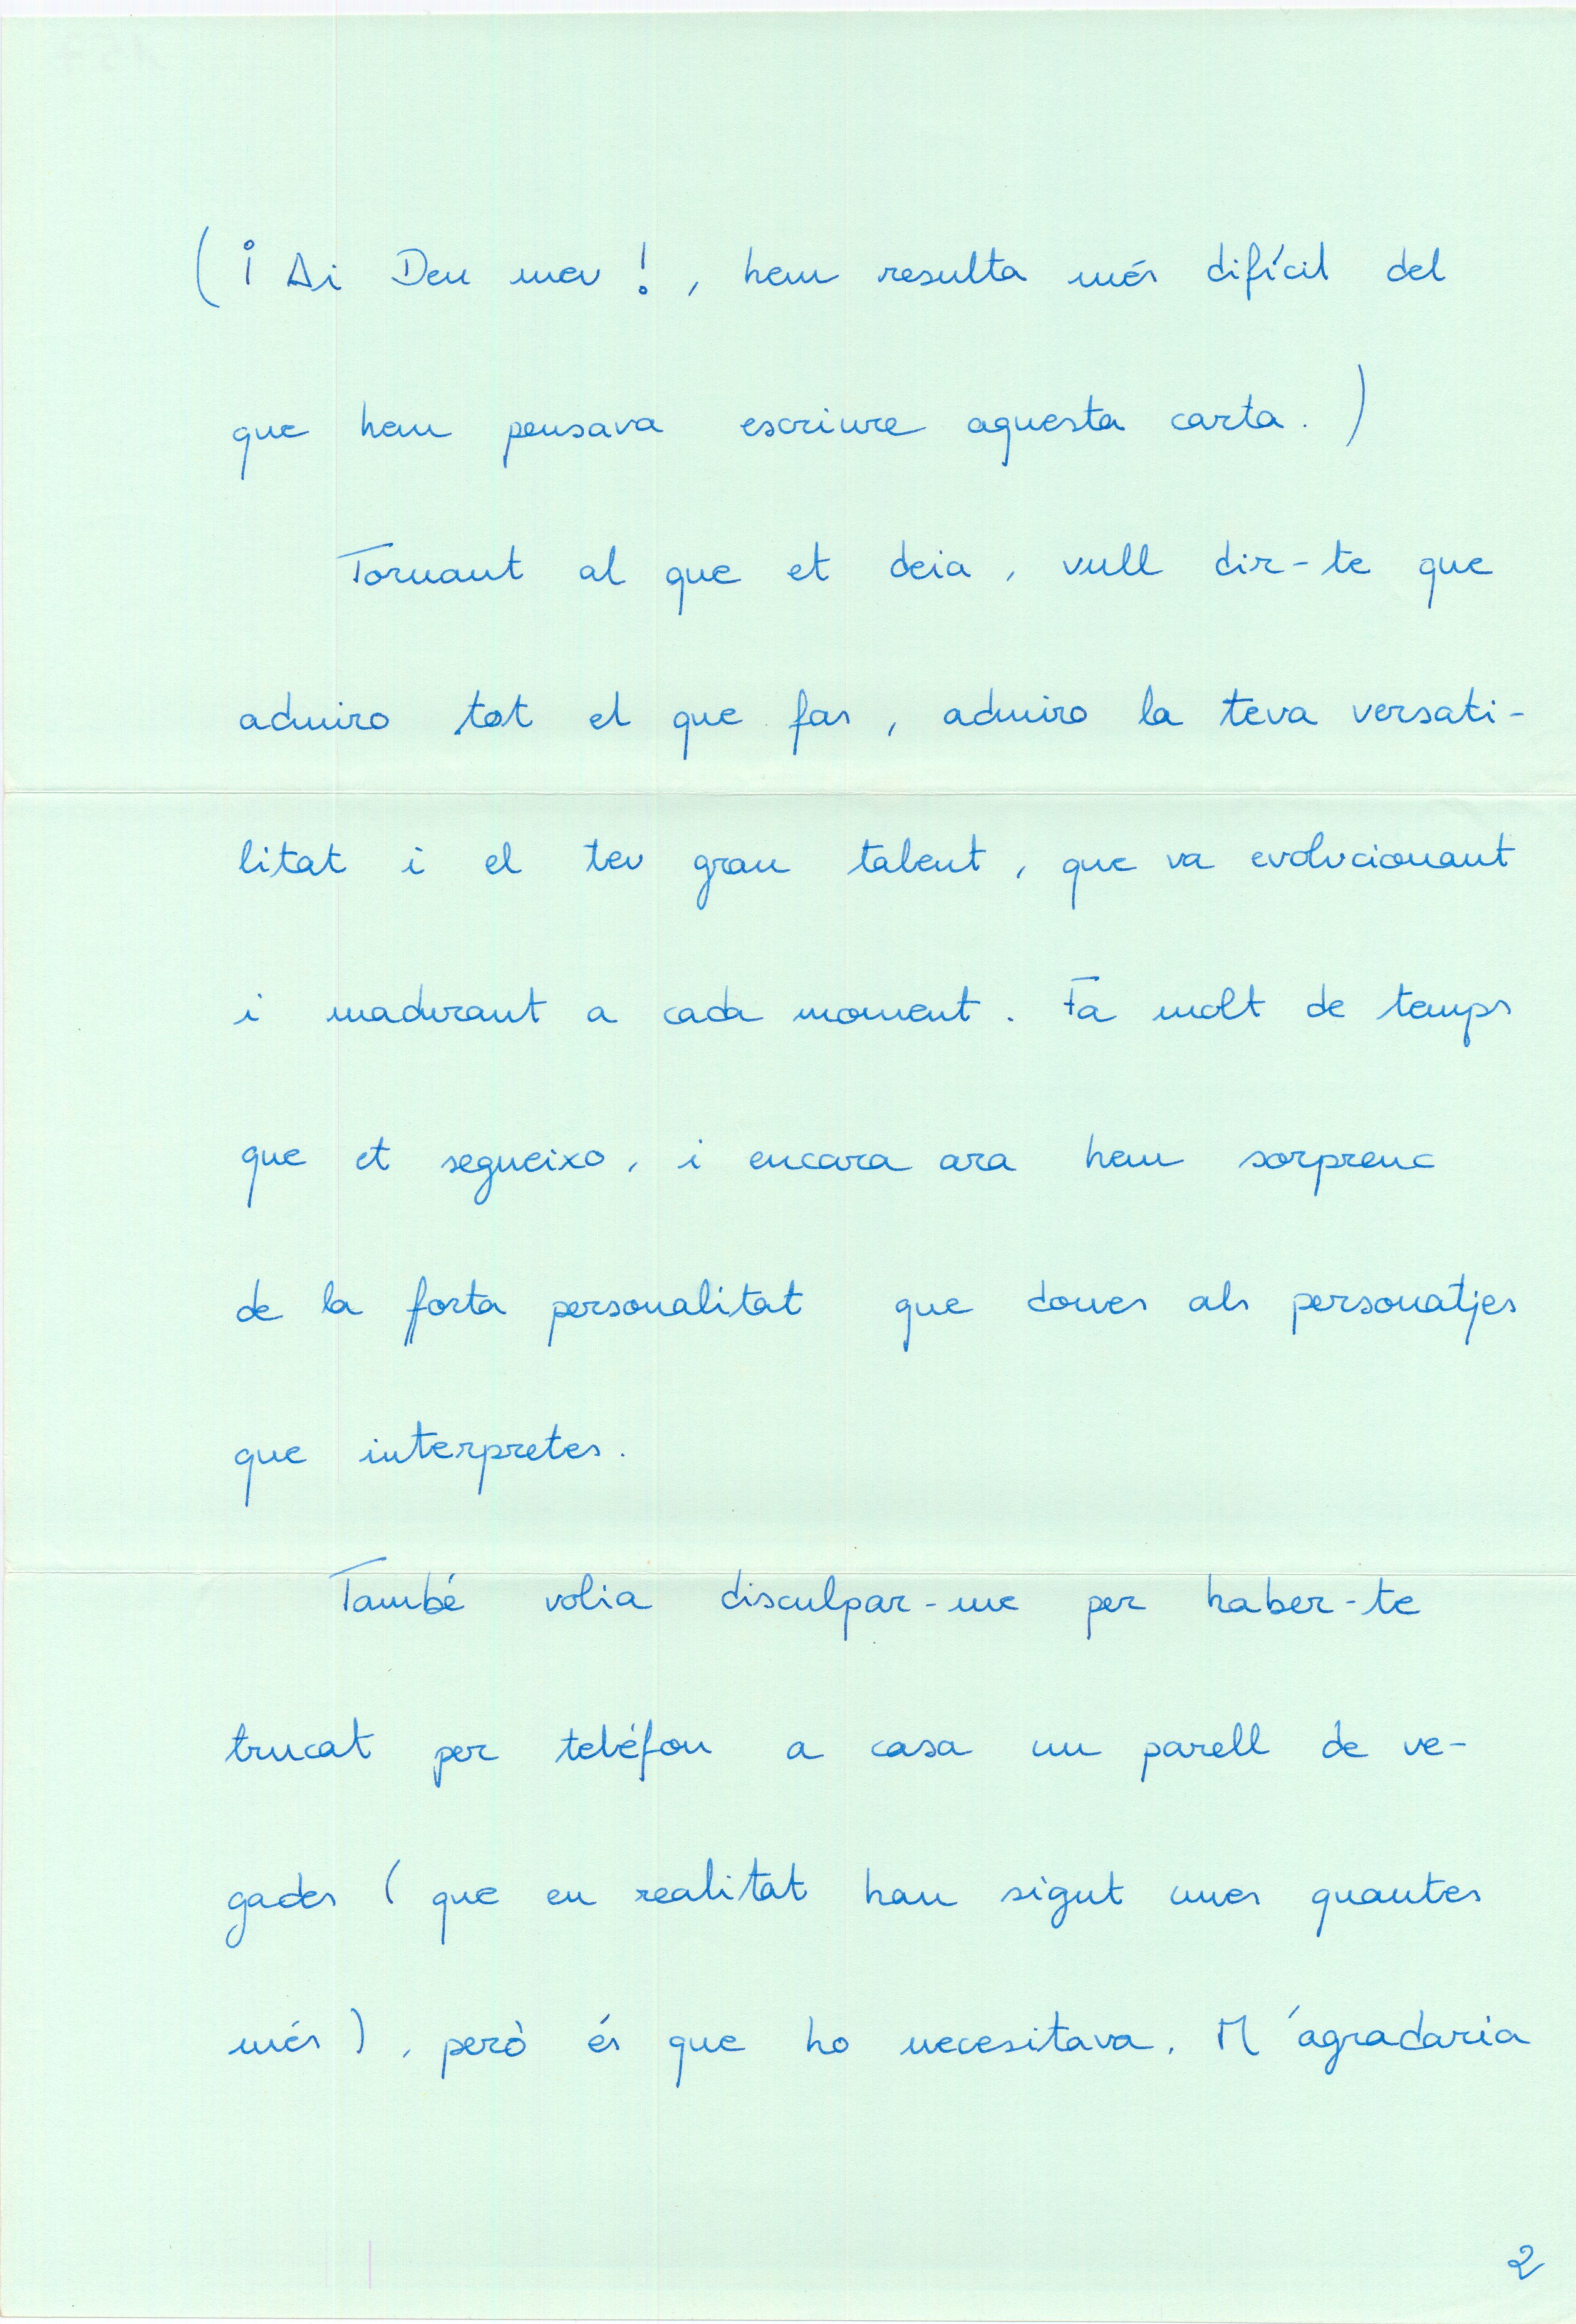 (¡ Ai Deu meu !, hem resulta més difícil del
que hem pensava escriure aquesta carta.)
Tornant al que et deia, vull dir-te que
admiro tot el que fas, admiro la teva versati-
litat i el teu gran talent, que va evolucionant
i madurant a cada moment. Fa molt de temps
que et segueixo, i encara ara hem sorprenc
de la forta personalitat que dones als personatjes
que interpretes.
També volia disculpar-me per haber-te
trucat per teléfon a casa un parell de ve-
gades (que en realitat han sigut unes quantes
més), però és que ho necesitava. M'agradaria
2